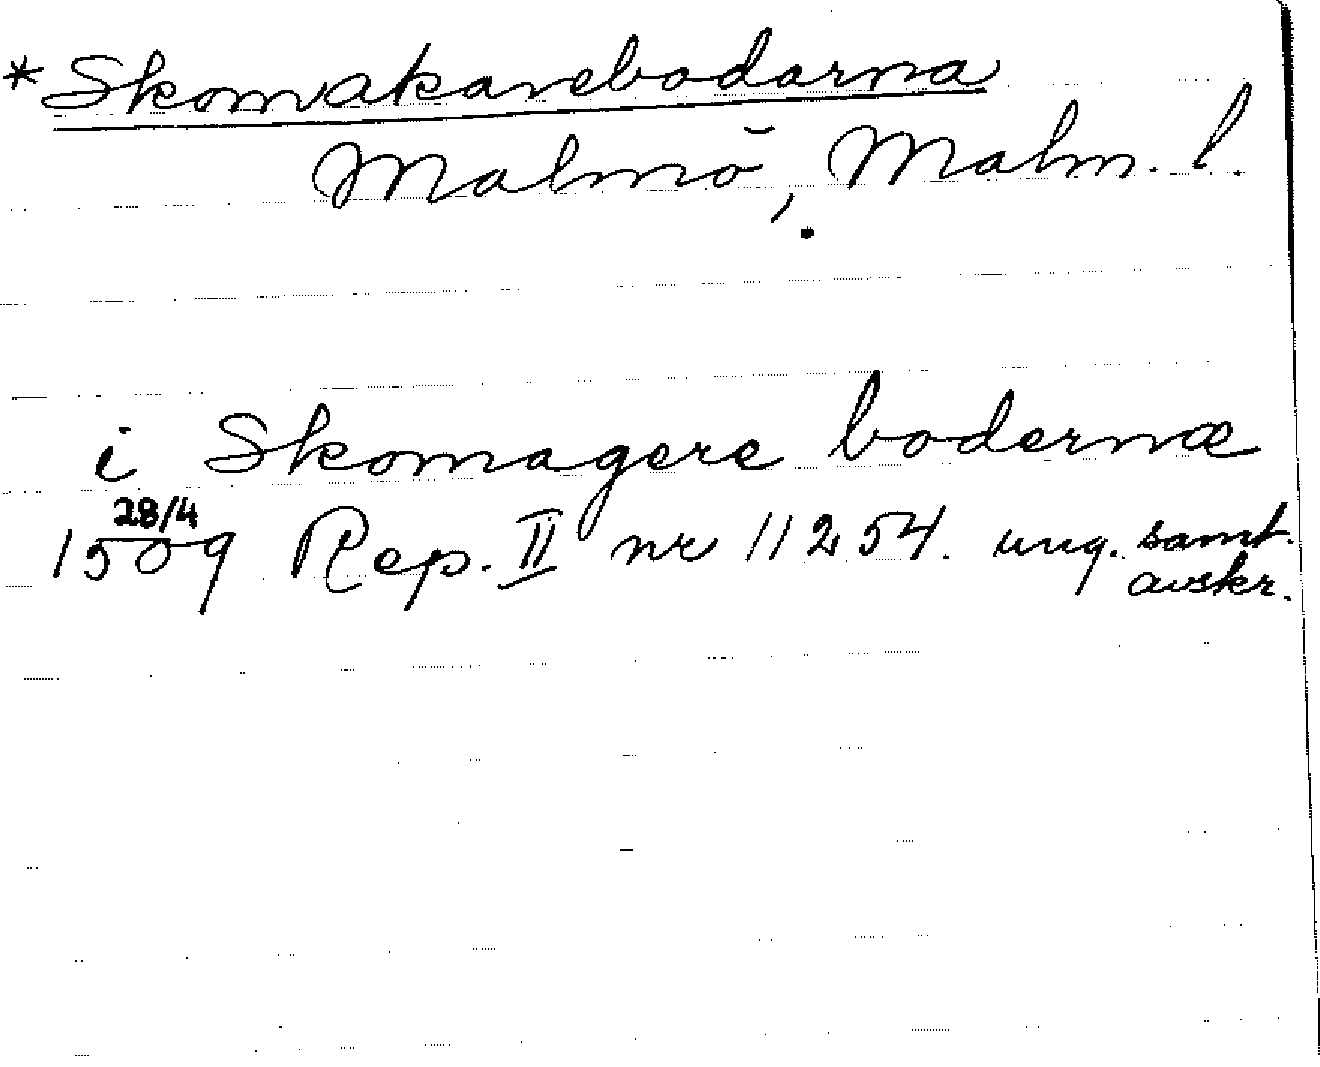 *Skomakarebodarna
Malmö, Malm. l.
i Skomagere bodernæ
28/4
1509 Rep. II nr 11254. ung. samt.
avskr.